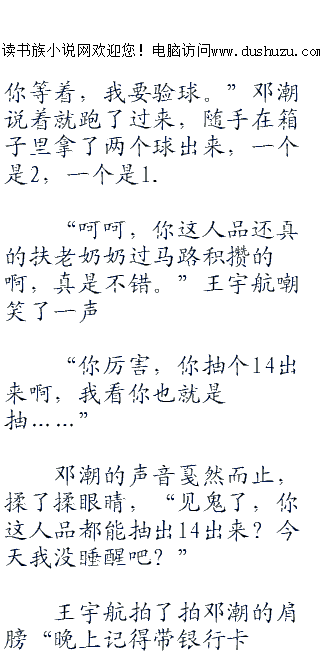 读书族小说网欢迎您！电脑访问www.dushuzu.com
你等着，我要验球。”邓潮
说着就跑了过来，随手在箱
子里拿了两个球出来，一个
是2，一个是1.
“呵呵，你这人品还真
的扶老奶奶过马路积攒的
啊，真是不错。”王宇航嘲
笑了一声
“你厉害，你抽个14出
来啊，我看你也就是
抽……”
邓潮的声音戛然而止，
揉了揉眼睛，“见鬼了，你
这人品都能抽出14出来？今
天我没睡醒吧？”
王宇航拍了拍邓潮的肩
膀“晚上记得带银行卡